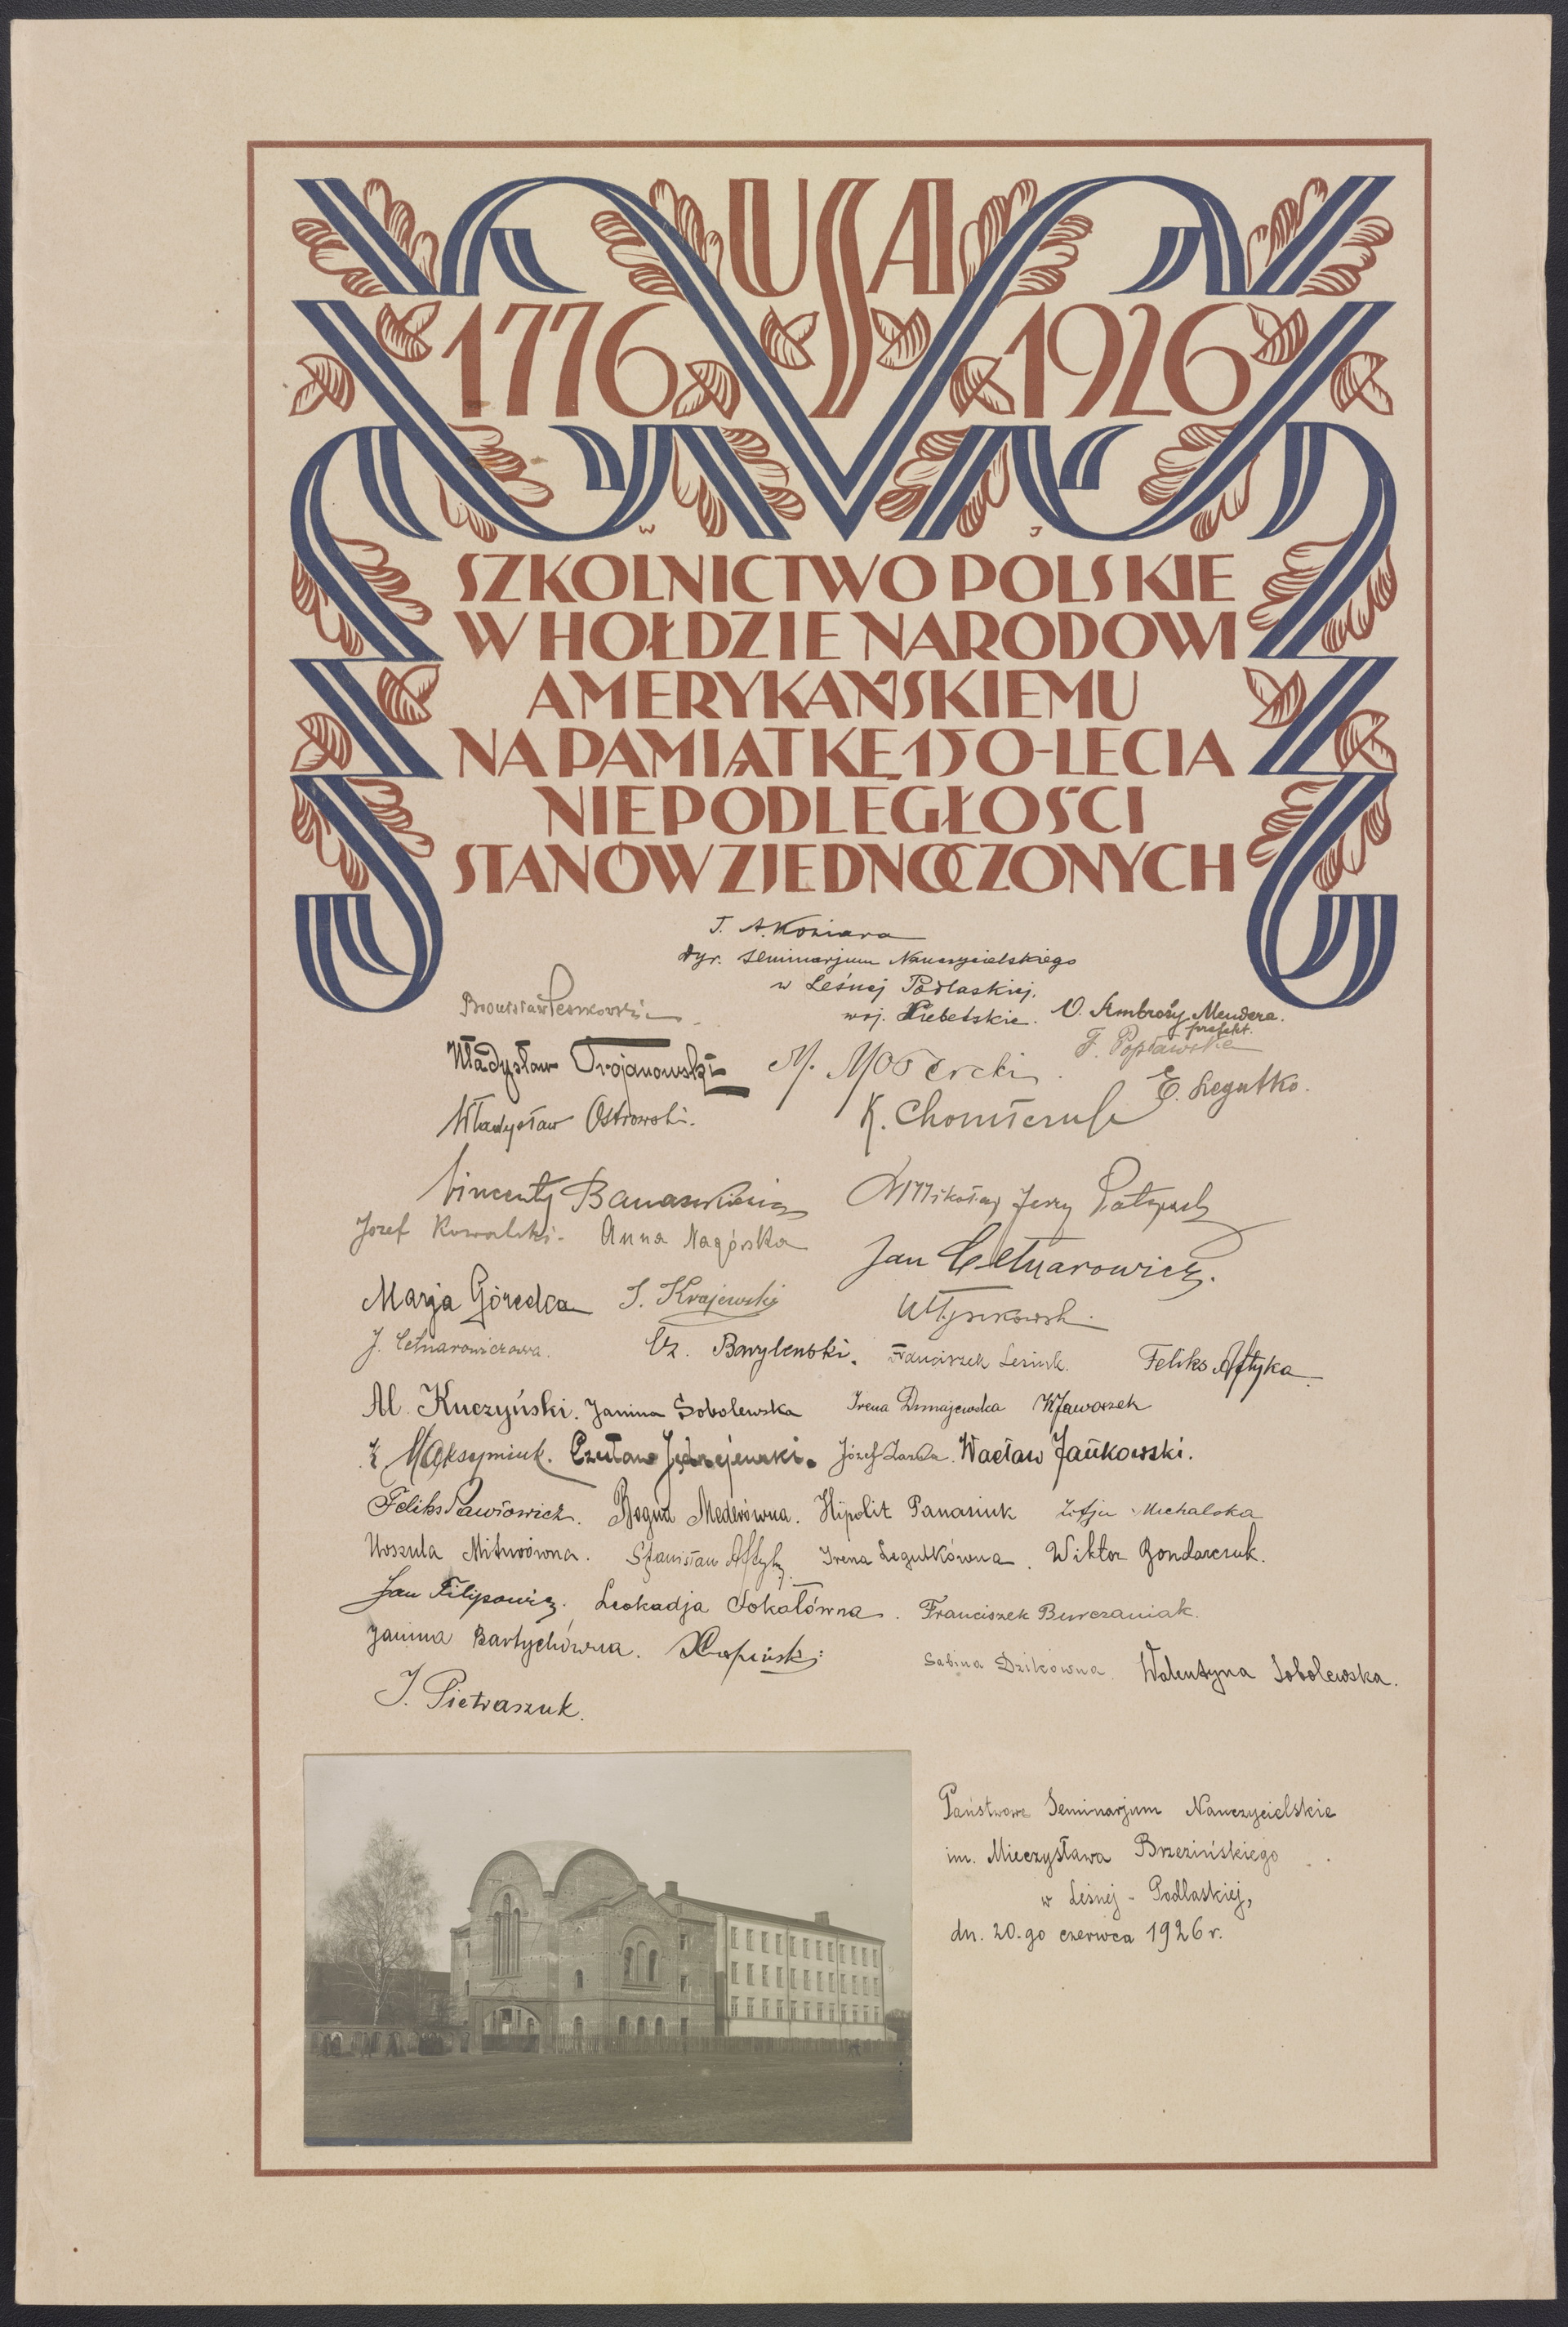 USA
1776 1926
W J
SZKOLNICTWO POLSKIE
W HOŁDZIE NARODOWI
AMERYKAŃSKIEMU
NA PAMIĄTKĘ 150-LECIA
NIEPODLEGŁOŚCI
STANÓW ZJEDNOCZONYCH
J. A. Koziara
dyr. seminarjum Nauczycielskiego
w Leśnej Podlaskiej.
woj. Lubelskie.
O. Ambroży Mendera.
prefekt.
F. Popławska
Władysław Trojanowski
E. Legutko.
Władysław Ostrowski.
K.
Wincenty Banaszkiewicz
Mikołaj Jerzy
Józef Kowalski. Anna Nagórska
Jan Cetnarowicz.
Marja Górecka J. Krajewski
J. Cetnarowiczowa. Cz. Barylenski. Franciszek Lesiuk. Feliks Aftyka
Al. Kuczyński. Janina Sobolewska Irena Dmajewska K. Jaworzek
K. Maksymiuk. Czesław Jędrzejewski. Józef Zarda. Wacław Jańkowski.
Feliks Pawłowicz. Bogna Mederówna. Hipolit Panasiuk Zofja Michalska
Urszula Mitwówna. Stanisław Aftyka Irena Legutkówna. Wiktor Bondarczuk.
Jan Filipowicz. Leokadja Sokołówna. Franciszek Burczaniak.
Janina Bartychówna.
Sabina Dzikowna. Walentyna Sobolewska.
J. Pietraszuk.
Państwowe Seminarjum Nauczycielskie
im. Mieczysława Brzezińskiego
w Leśnej - Podlaskiej,
dn. 20-go czerwca 1926 r.